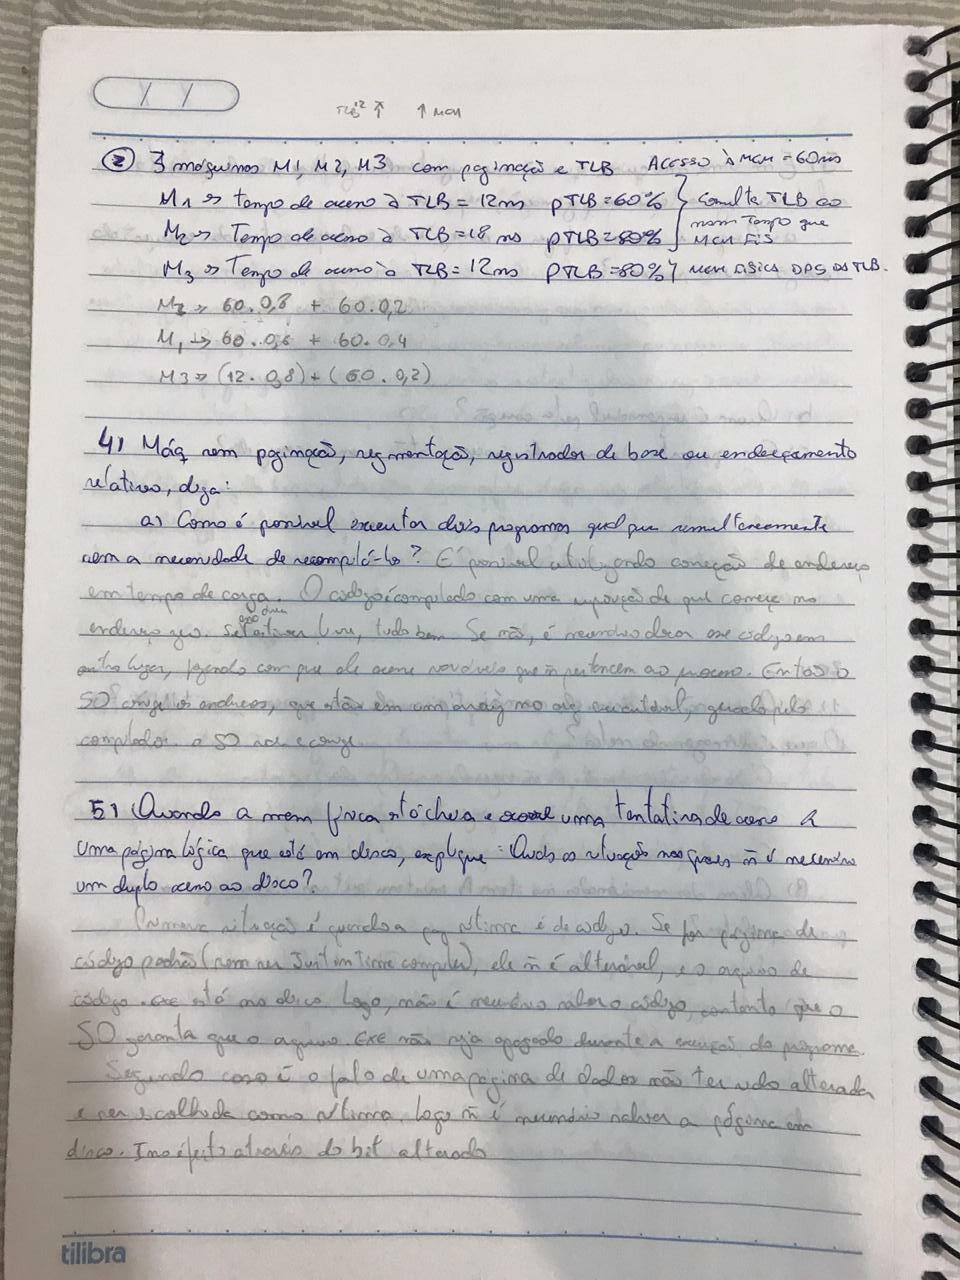 TLB ↑ ↑ MCM
② 3 máquinas M1, M2, M3 com paginação e TLB ACESSO À MCM = 60ns
M1 → tempo de acesso à TLB = 12ns pTLB = 60% } Consulta TLB ao
M2 → Tempo de acesso à TLB = 18 ns pTLB = 80% mesmo tempo que MCM FIS
M3 → Tempo de acesso à TLB = 12ns pTLB = 80% } MCM FISICA DPS DA TLB.
M2 → 60.0,8 + 60.0,2
M1 → 60.0,6 + 60.0,4
M3 → (12.0,8) + (60.0,2)
4) Máq sem paginação, segmentação, registrador de base ou endereçamento
relativo, diga:
a) Como é possível executar dois programas qual quer simultaneamente
sem a necessidade de recompilá-los? É possível utilizando correção de endereço
em tempo de carga. O código é compilado com uma suposção de que começe no
endereço zero. Se essa área estiver livre, tudo bem. Se não, é necessário alocar esse código em
outro lugar, fazendo com que ele acesse variáveis que ñ pertencem ao processo. Então o
SO corrige os endereços, que estão em um no arq executável, gerado pelo
compilador. o SO e corrige
5) Quando a mem física está cheia e ocorre uma tentativa de acesso a
uma página lógica que está em disco, explique: Quais as situações nas quais ñ é necessário
um duplo acesso ao disco?
Primeira situação é quando a pag vítima é de código. Se for página de
código padrão (sem ser Just in time compiler), ele ñ é alterável, e o arquivo de
código .exe está no disco. Logo, não é necessário salvar o código, contanto que o
SO garanta que o arquivo .EXE não seja apagado durante a execução do programa.
Segundo caso é o fato de uma página de dados não ter sido alterada
e ser escolhida como vítima. Logo ñ é necessário salvar a página em
disco. Isso é feito através do bit alterado
tilibra